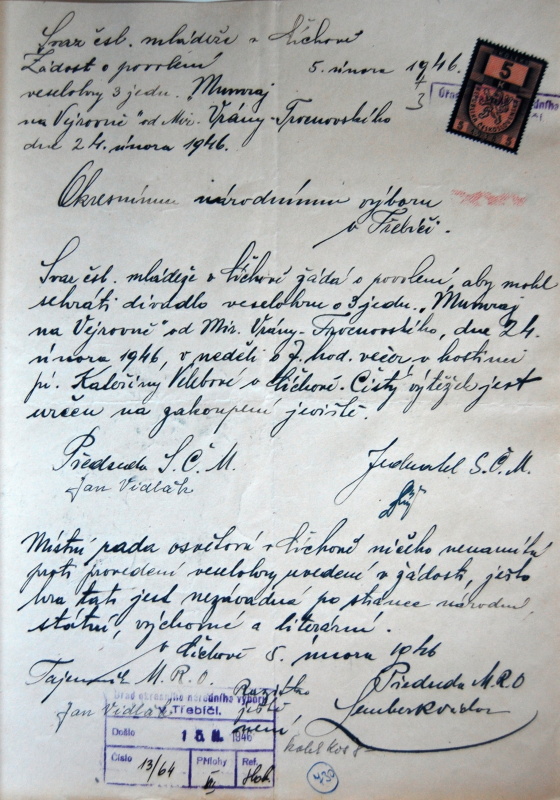 Svaz čsl. mládeže v Číchově
Žádost o povolení 5. února 1946.
veselohry 3 jedn. "Mumraj
na Vejrovně" od Mir. Vrány-Trocnovského
dne 24. února 1946.
5
Okresnímu národnímu výboru
v Třebíči.
Svaz čsl. mládeže v Číchově žádá o povolení, aby mohl
sehráti divadlo veselohru o 3 jedn. "Mumraj
na Vejrovně" od Mir. Vrány-Trocnovského, dne 24.
února 1946, v neděli o 7. hod. večer v hostinci
pí. Kateřiny Velebové v Číchově. Čistý výtěžek jest
určen na zakoupení jeviště.
Předseda S.Č.M. Jednatel S.Č.M.
Jan Vidlák
Místní rada osvětová v Číchově ničeho nenamítá
proti provedení veselohry uvedené v žádosti, jesto
hra tato jest nezávadná po stránce národní,
státní, výchovné a literární.
V Číchově 5. února 1946
Tajemník M.R.O. Razítko Předseda M.R.O
Jan Vidlák ještě
není
Úřad okresního národního výboru
v Třebíči.
Došlo 15. II. 1946
Číslo 13/64 Přílohy Ref.